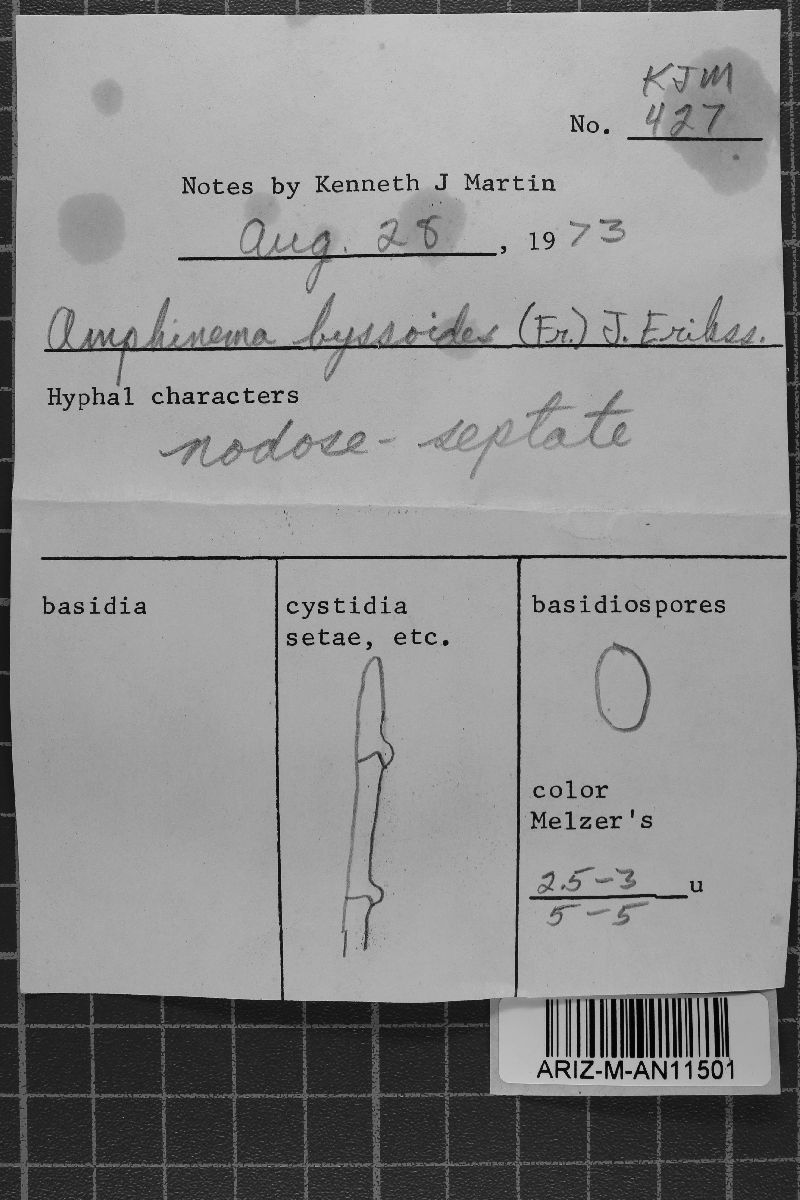 KJM
No. 427
Notes by Kenneth J Martin
Aug. 28, 1973
Amphinema byssoides (Fr.) J. Erikss.
Hyphal characters
nodose-septate
basidia
cystidia
setae, etc.
basidiospores
color
Melzer's
2.5-3 u
5-5
ARIZ-M-AN11501